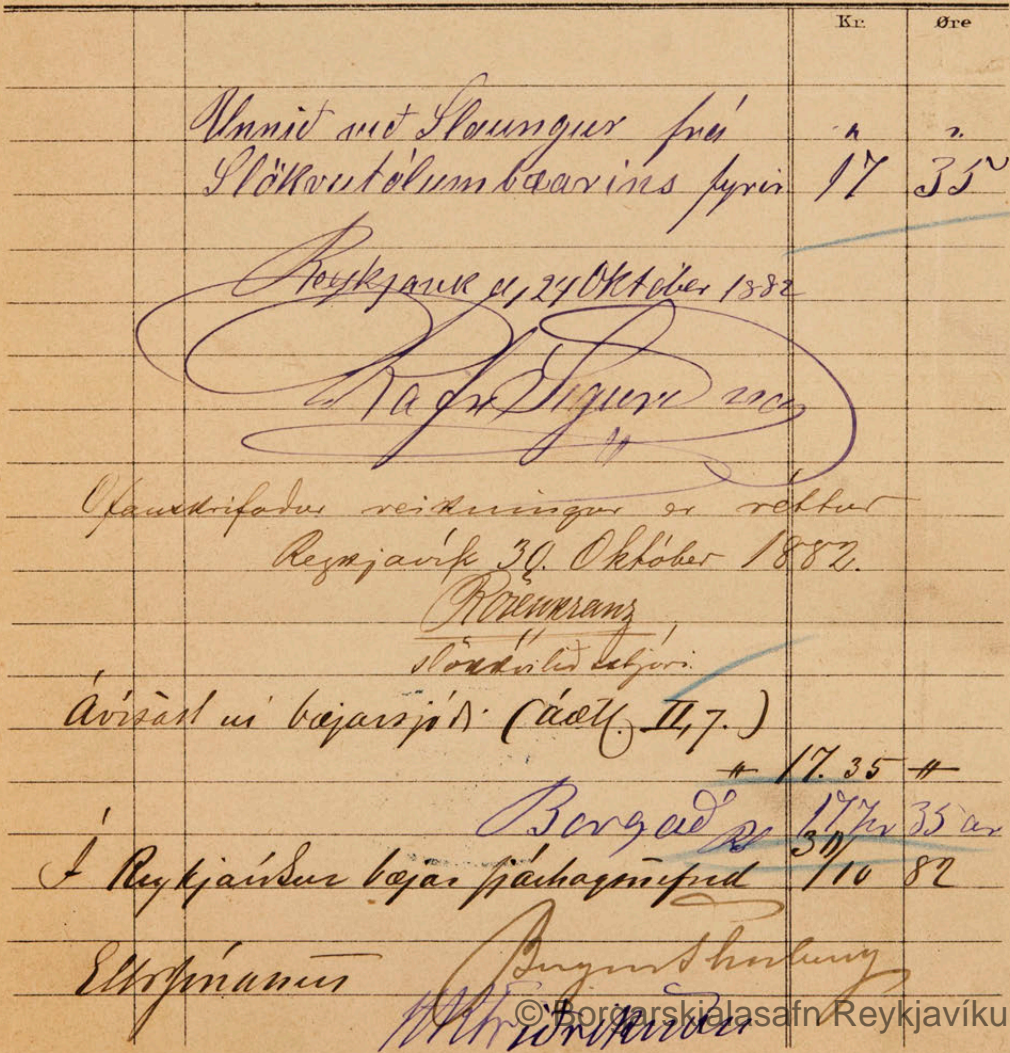 Kr. Øre
Unnið við Slaungur frá " "
Slökvutólum bæarins fyrir 17 35
Reykjavik d, 24 Október 1882
Rafn Sigurðsson
Ofanskrifaður reikningur er réttur
Reykjavík 30. Október 1882.
Rósenkranz
slökkviliðsstjóri.
Ávísast úr bæjarsjóði (áætl. II, 7.)
" 17. 35 "
Borgað RS 17 kr 35 ar
30/
Í Reykjavíkur bæjar fjárhagsnefnd 10 82